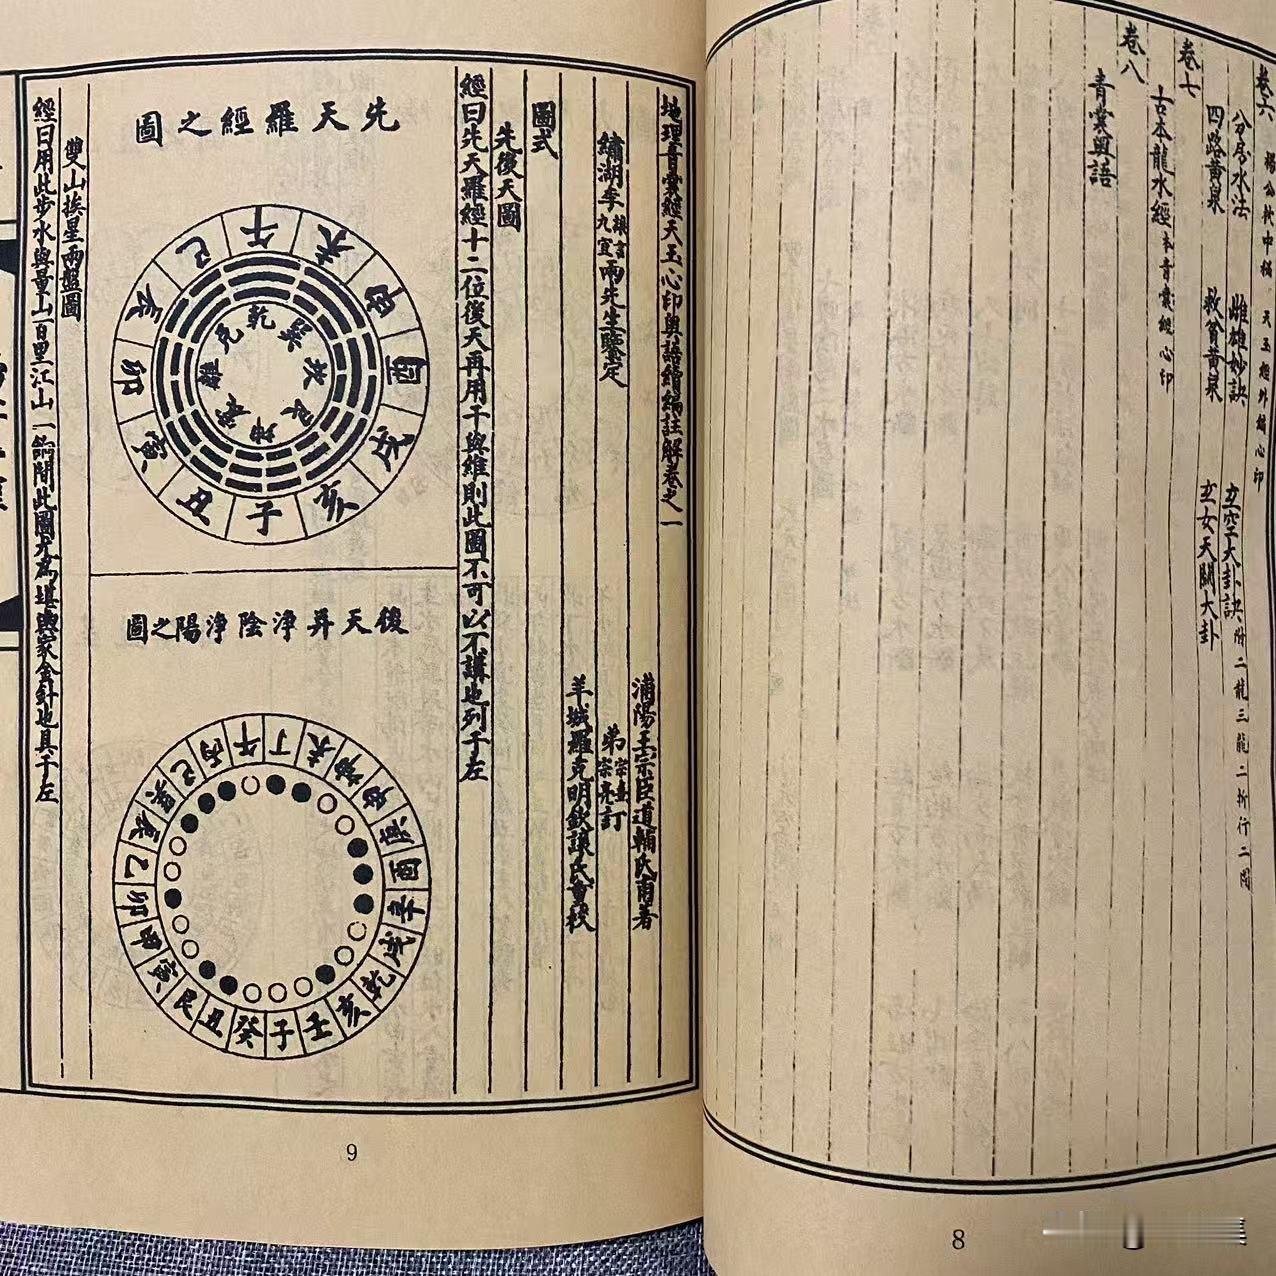 卷六
楊公代中橘 天玉經外編心印
分房水法 雌雄妙訣 玄空大卦訣附二龍三龍二折行二問
四路黃泉 救貧黃泉 玄女天關大卦
卷七
古本龍水經本青囊經心印
卷八
青囊奧語
8
地理青囊經天玉心印奧語續編註解卷之一
浦陽王宗臣道輔氏甫著
繡湖李九宜兩先生鑒定
弟宗亮訂
羊城羅克明欽讓氏重校
圖式
先後天圖
經曰先天羅經十二位後天再用干與維則此圖不可以不講也列于左
先天羅經之圖
午 未 申 酉 戌 亥 子 丑 寅 卯 辰 巳
乾 巽 坎 艮 坤 震 離 兌
後天并淨陰淨陽之圖
午 丁 未 坤 申 庚 酉 辛 戌 乾 亥 壬 子 癸 丑 艮 寅 甲 卯 乙 辰 巽 巳 丙
雙山挨星兩盤圖
經曰用此步水與量山百里江山一餉間此圖尤為堪輿家金針也具于左
9